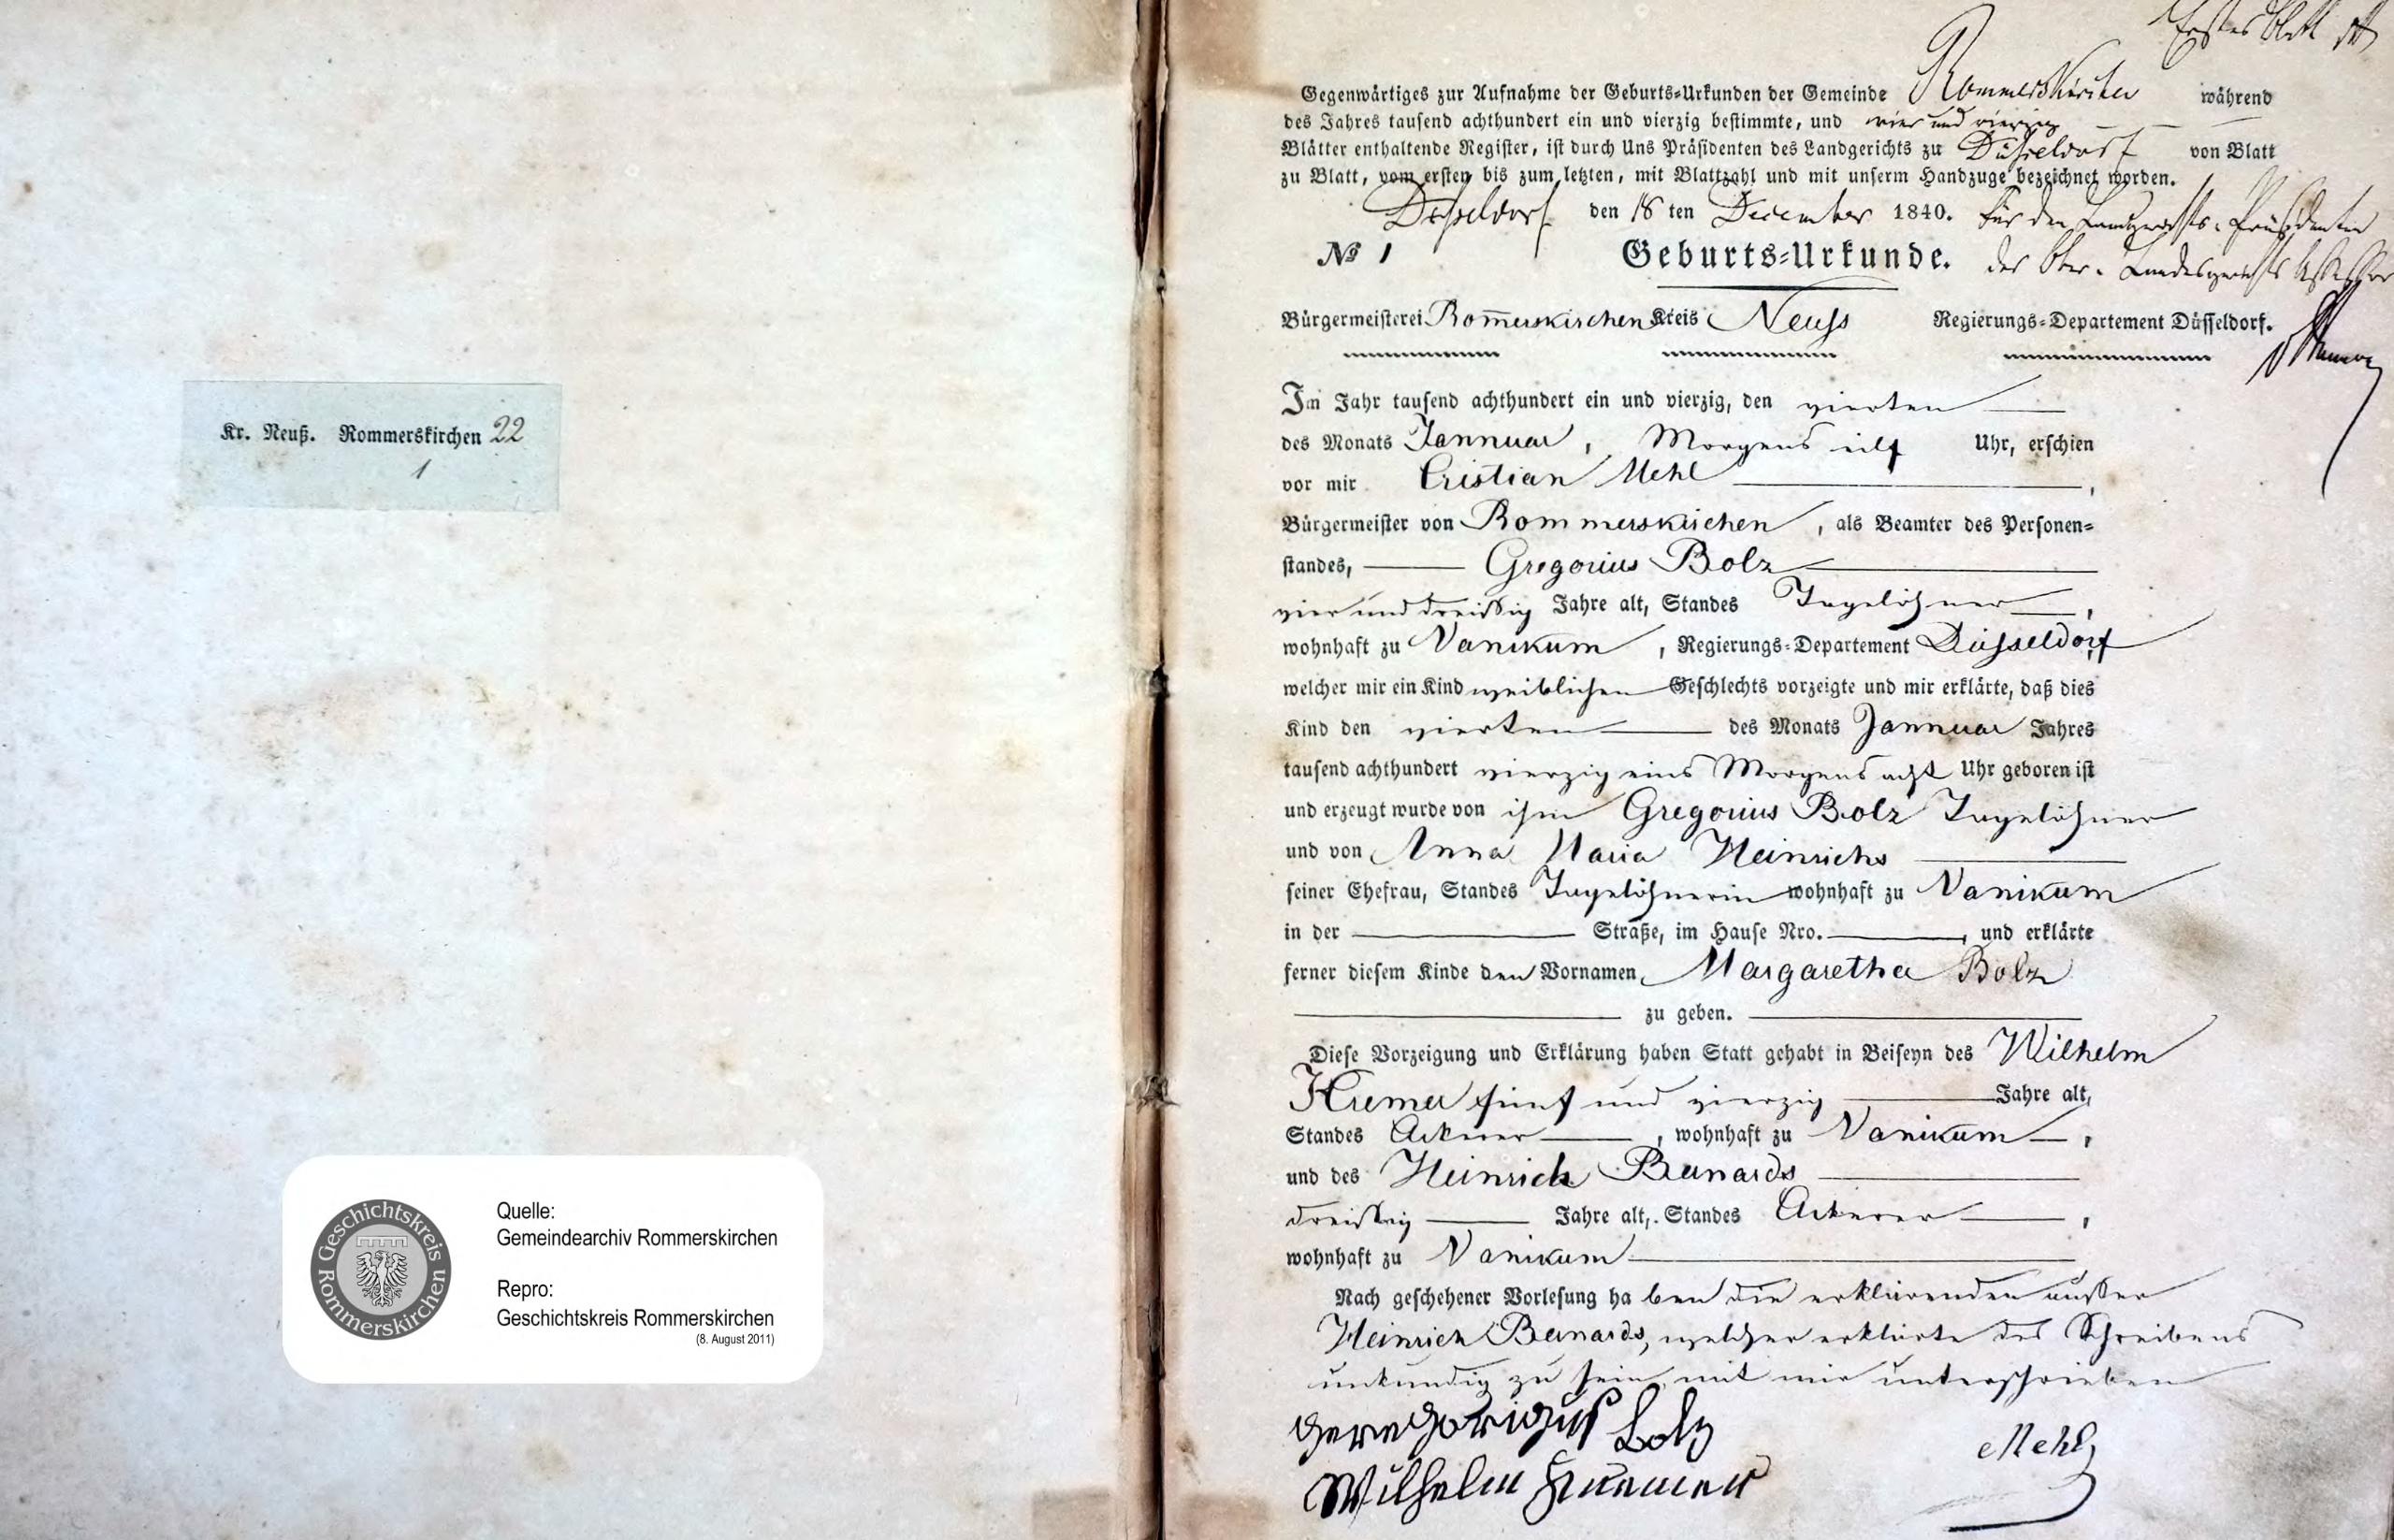 Kr. Neuß. Rommerskirchen 22
1
Geschichtskreis Rommerskirchen
Quelle:
Gemeindearchiv Rommerskirchen
Repro:
Geschichtskreis Rommerskirchen
(8. August 2011)
Erstes Blatt
Gegenwärtiges zur Aufnahme der Geburts-Urkunden der Gemeinde Rommerskirchen während
des Jahres tausend achthundert ein und vierzig bestimmte, und vier und vierzig
Blätter enthaltende Register, ist durch Uns Präsidenten des Landgerichts zu Düsseldorf von Blatt
zu Blatt, vom ersten bis zum letzten, mit Blattzahl und mit unserm Handzuge bezeichnet worden.
Düsseldorf den 18 ten December 1840. Für den Landgerichts-Präsidenten
der Ober-Landesgerichts Assessor
№ 1 Geburts-Urkunde.
Bürgermeisterei Rom̅erskirchen Kreis Neuss Regierungs-Departement Düsseldorf.
Im Jahr tausend achthundert ein und vierzig, den vierten
des Monats Jannuar, Morgens eilf Uhr, erschien
vor mir Cristian Mehl,
Bürgermeister von Rommerskirchen, als Beamter des Personen-
standes, Gregorius Bolz
vier und dreißig Jahre alt, Standes Tagelöhner,
wohnhaft zu Vanikum, Regierungs-Departement Düsseldorf
welcher mir ein Kind weiblichen Geschlechts vorzeigte und mir erklärte, daß dies
Kind den vierten des Monats Jannuar Jahres
tausend achthundert vierzig eins Morgens acht Uhr geboren ist
und erzeugt wurde von ihm Gregorius Bolz Tagelöhner
und von Anna Maria Heinrichs
seiner Ehefrau, Standes Tagelöhnerin wohnhaft zu Vanikum
in der Straße, im Hause Nro. , und erklärte
ferner diesem Kinde den Vornamen Margaretha Bolz
zu geben.
Diese Vorzeigung und Erklärung haben Statt gehabt in Beiseyn des Wilhelm
Kremer fünf und vierzig Jahre alt,
Standes Ackerer, wohnhaft zu Vanikum,
und des Heinrich Bernards
dreißig Jahre alt, Standes Ackerer,
wohnhaft zu Vanikum
Nach geschehener Vorlesung haben die erklärenden außer
Heinrich Bernards, welcher erklärte des Schreibens
unkundig zu sein, mit mir unterschrieben
Geregorigus Bolz
Mehl
Wilhelm Kremer